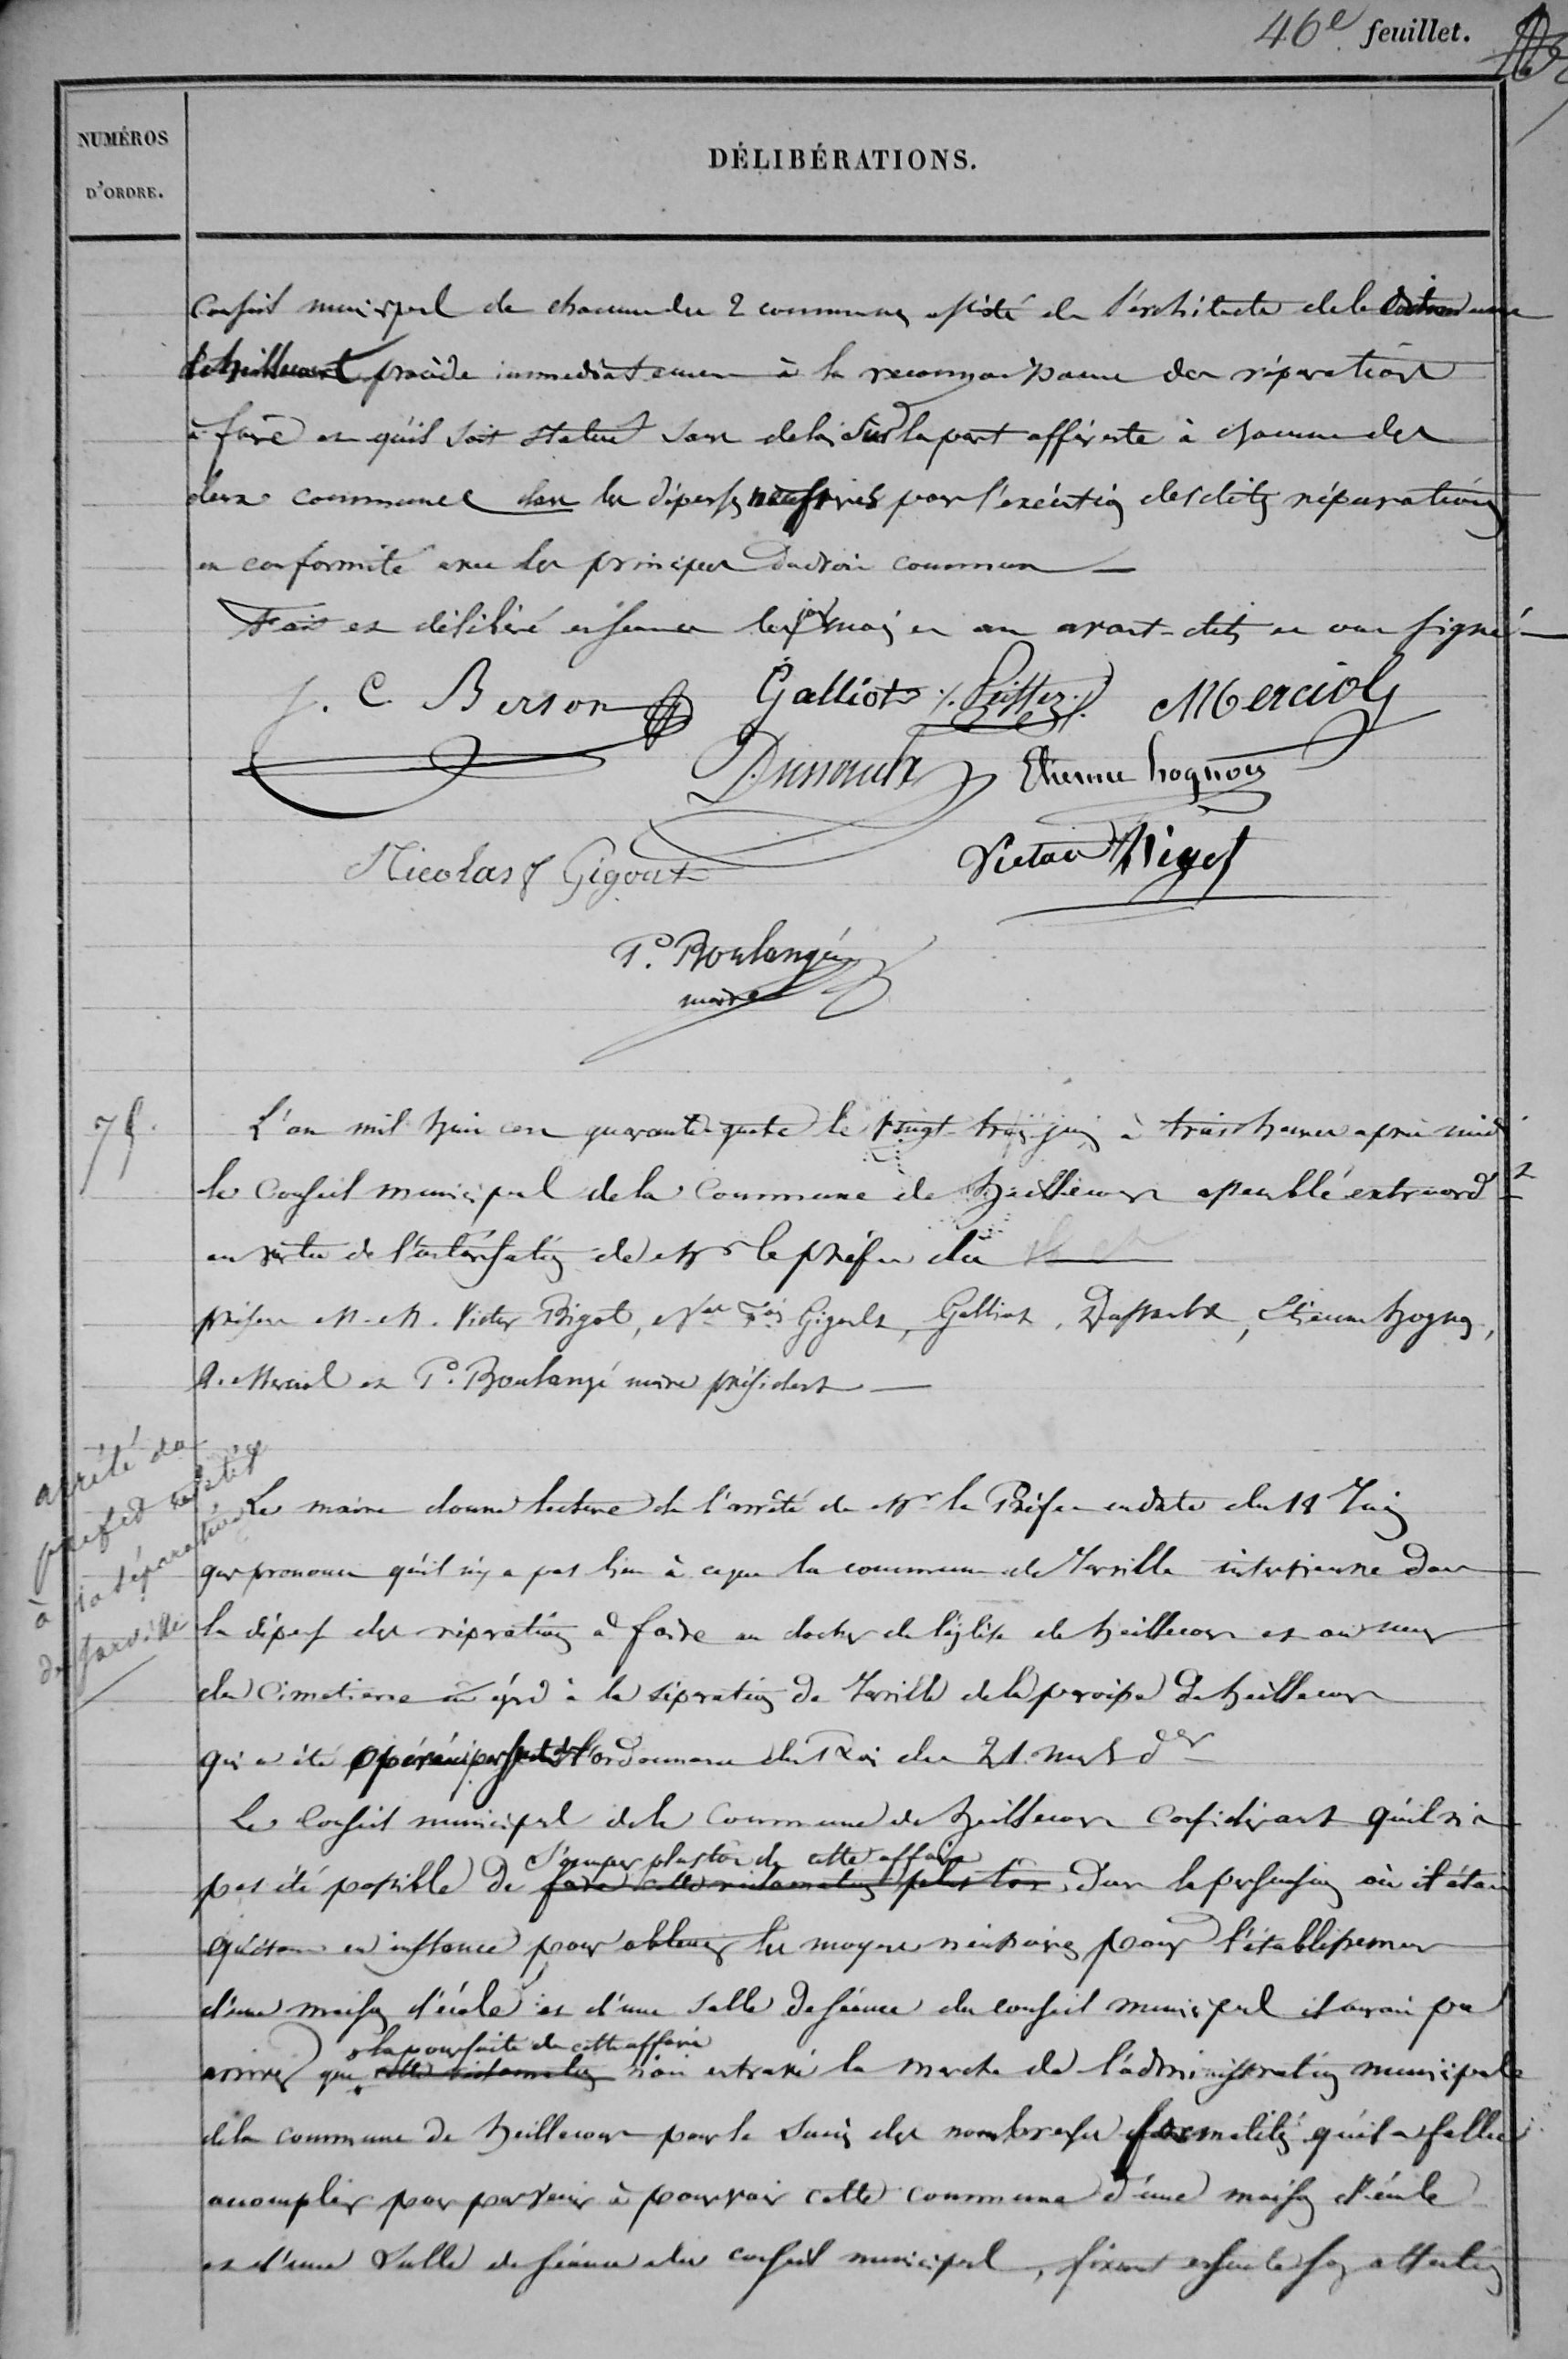 46e feuillet.
NUMÉROS
D'ORDRE.
DÉLIBÉRATIONS.
Conseil municipal de chacune des 2 communes assisté de l'architecte de la
procède immediatement à la reconnaissance des réparations
à faire et qu'il soit statué sans delai sur la part afférente à chacune des
deux communes dans les dépenses necessaires pour l'exécution desdites réparations
en conformité avec les principes du droit commun —
Fait et délibéré en séance les jour mois et an avant-dits et ont signé —
J. C. Berson Galliot Merciol
Dussault Etienne hognon
Nicolas f Gigout Victor Bigot
P. Boulangé
maire
75.
L'an mil huit cent quarante quatre le vingt trois juin à trois heures après midi
le Conseil municipal de la Commune de heillecourt assemblé extraord
en vertu de l'autorisation de Mr le préfet du
présens M. M. Victor Bigot, Nas Fois Gigoult, Galliot, Dussault, Etienne hognon,
Merciol et P. Boulangé maire président —
arrêté du
prefet relatif
à la séparation
de jarville
Le maire donne lecture de l'arrêté de Mr le Préfet en date du 18 Juin
qui prononce qu'il n'y a pas lieu à ce que la commune de Jarville intervienne dans
la dépense des réparations à faire au clocher de l'église de heillecourt et aux murs
du Cimetiere eu égard à la séparation de Jarville de la paroisse de heillecourt
qui a été opérée par suite de l'ordonnance du Roi du 21 mars der
Le Conseil municipal de la Commune de heillecourt Considérant qu'il n'a
s'occuper plus tôt de cette affaire
pas été possible de faire cette réclamation plus tôt dans la persuasion où il était
qu'étant en instance pour obtenir les moyens nécessaires pour l'établissement
d'une maison d'école et d'une salle de séance du conseil municipal il aurait pu
la poursuite de cette affaire
arriver que cette réclamation n'ait entravé la marche de l'administration municipale
de la commune de heillecourt pour le suivi des nombreuses formalités qu'il a fallu
accomplir pour parvenir à pourvoir cette commune d'une maison d'école
et d'une Salle de séance du conseil municipal, fixant ensuite son attention